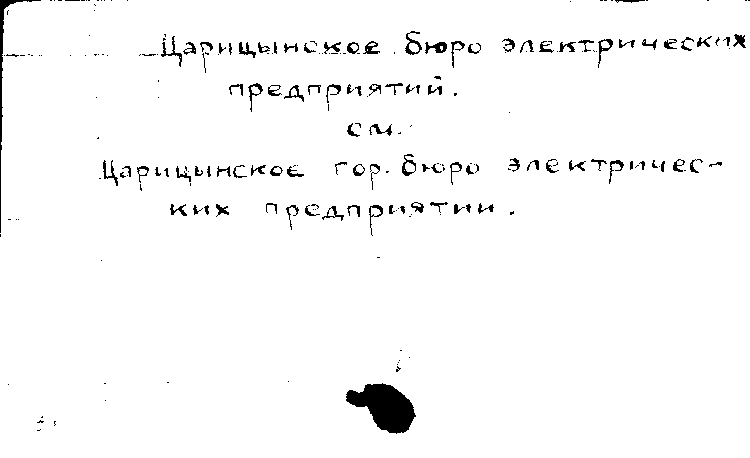 Царицынское бюро электрических
предприятий.
см.
Царицынское гор. бюро электричес-
ких предприятии.